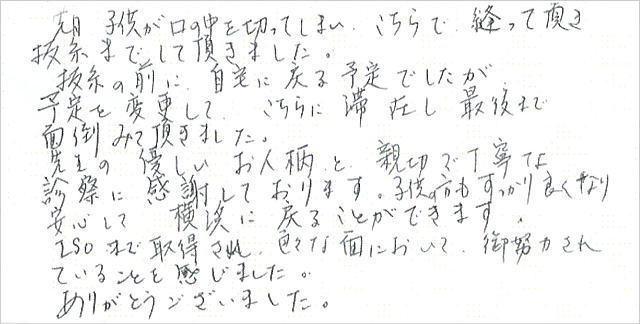 先月 子供が口の中を切ってしまい、こちらで縫って頂き
抜糸までして頂きました。
抜糸の前に、自宅に戻る予定でしたが
予定を変更して、こちらに滞在し最後まで
面倒みて頂きました。
先生の優しいお人柄と、親切で丁寧な
診察に感謝しております。子供の方もすっかり良くなり
安心して横浜に戻ることができます。
ISOまで取得され、色々な面において、御努力され
ていることを感じました。
ありがとうございました。